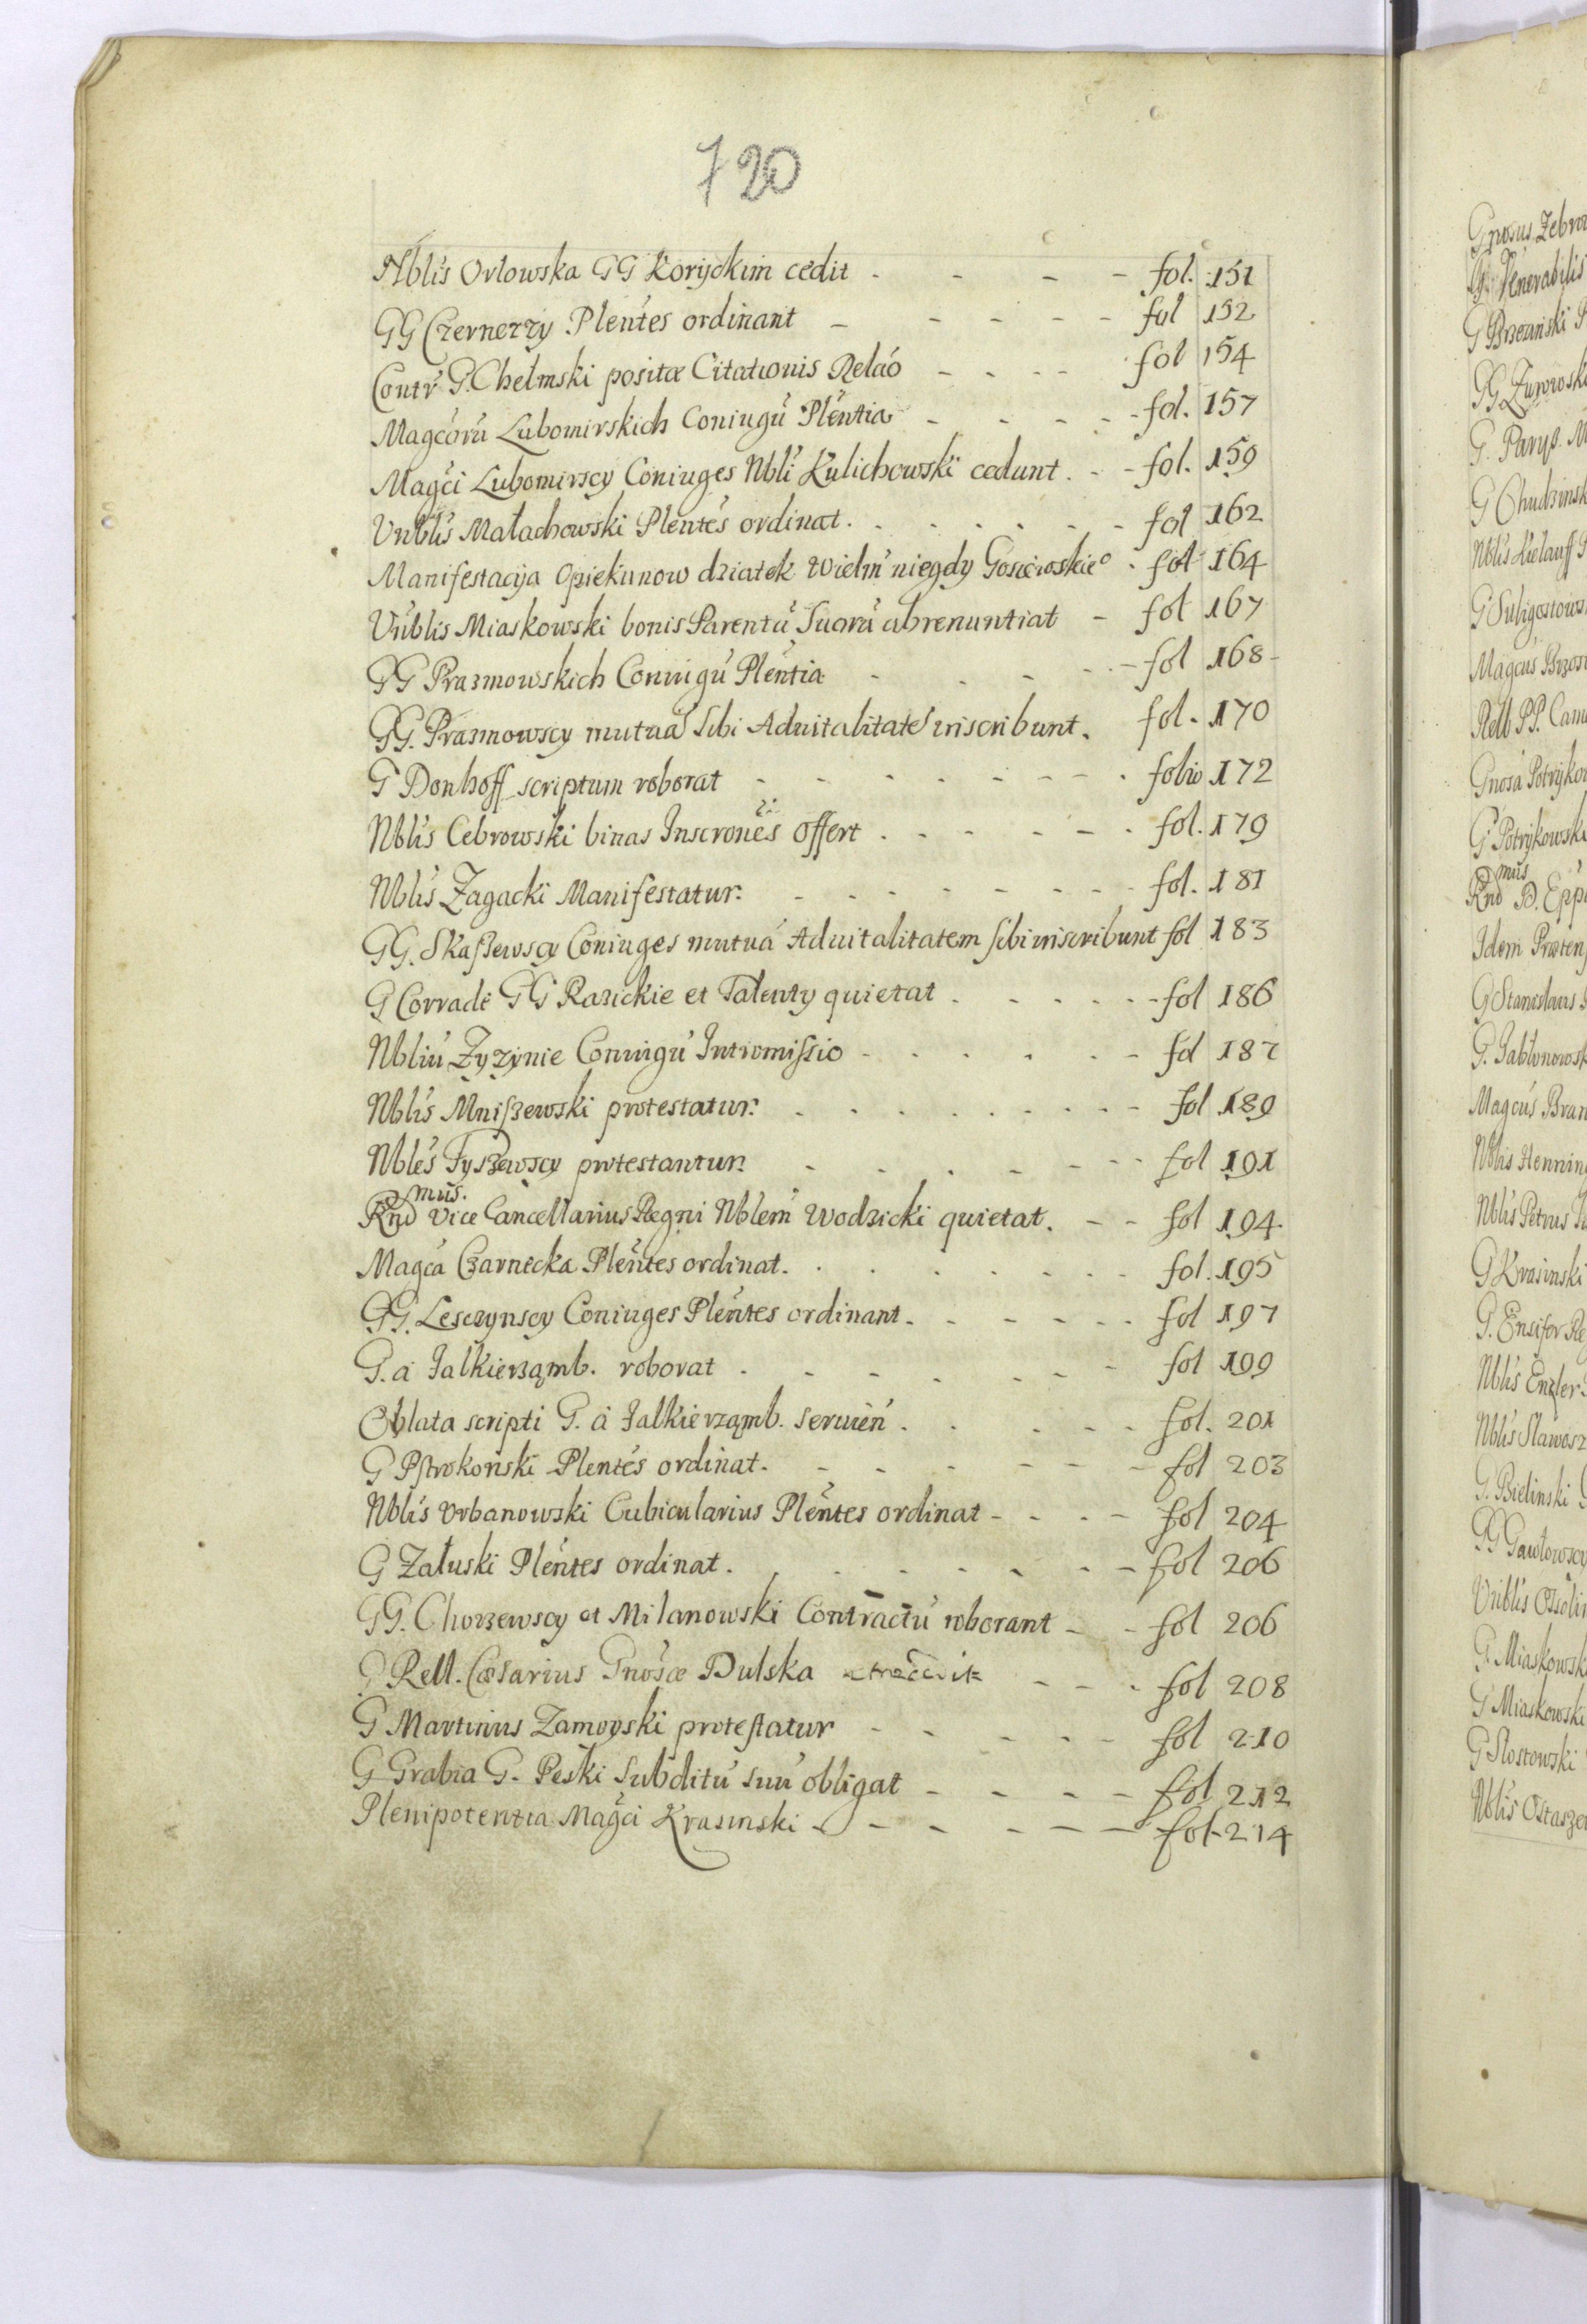 720
Nblis Orlowska GG Koryckim cedit - - - - fol. 151
GG Czernerzy Plentes ordinant - - - - - fol 152
Contr G. Chelmski positæ Citationis Relāo - - - - fol 154
Magcorū Lubomirskich Coniugū Plēntia - - - - fol. 157
Magci Lubomirscy Coniuges Nbli Kulichowski cedunt. - - fol. 159
Vnblis Małachowski Plentes ordinat. - - - - - fol 162
Manifestacija Opiekunow dziatek Wielm niegdy Gosiewskie° . fol 164
Vnblis Miaskowski bonis Parentū Suorū abrenuntiat - fol 167
GG Prazmowskich Coniugū Plēntia - - - - fol 168
GG. Prazmowscy mutuā sibi Aduitalitatē inscribunt. fol. 170
G Donhoff scriptum roborat - - - - - - - folio 172
Nblis Cebrowski binas Inscronēs offert . - - - - - fol. 179
Nblis Zagacki Manifestatur. - - - - - - - fol. 181
GG. Skaszewscy Coniuges mutuā Aduitalitatem sibi inscribunt fol 183
G Corradi GG Razickie et Talenty quietat . - - - - fol 186
Nbliū Zyzynie Coniugū Intromissio - - - - - - fol 187
Nblis Mniszewski protestatur. . - - - - - - - fol 189
Nbles Tyszewscy protestantur. - - - - - - fol 191
Rnd mus. Vice Cancellarius Regni Nblem Wodzicki quietat. - - fol 194.
Magca Czarnecka Plēntes ordinat. . - - - - - - fol. 195
GG. Lesczynscy Coniuges Plēntes ordinant. - - - - - fol 197
G. a Falkierzamb. roborat . - - - - - - fol 199
Oblata scripti G. a Falkierzamb. seruien . - - - - fol. 201
G Pstrokonski Plentes ordinat. - - - - - - fol 203
Nblis Vrbanowski Cubicularius Plēntes ordinat - - - - fol 204
G Załuski Plēntes ordinat. - - - - - - - fol 206
GG. Chorzewscy et Milanowski Contractū roborant - - fol 206
G Rell. Cæsarius Gnosæ Dulska - - - fol 208
G Martinus Zamoyski protestatur - - - - - fol 210
G Grabia G. Peski Subditū suū obligat - - - - fol 212
Plenipotentia Magci Krasinski - - - - - - fol. 214